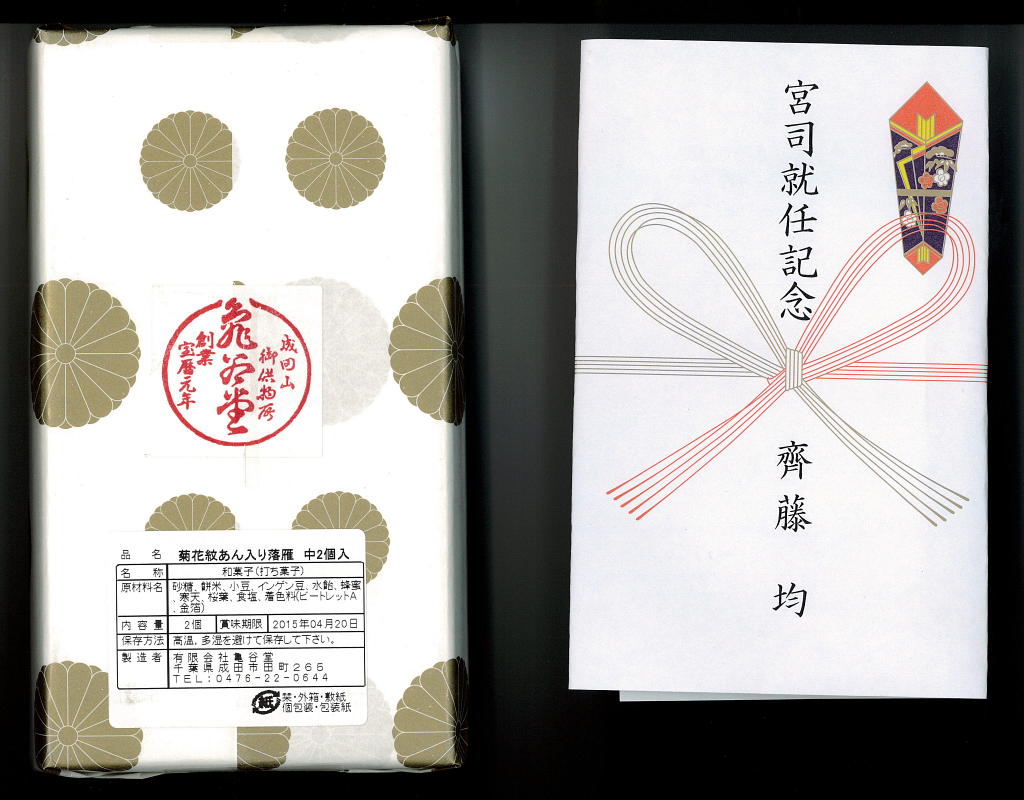 成田山
御供物所
亀谷堂
創業
宝暦元年
品 名 菊花紋あん入り落雁 中2個入
名 称 和菓子(打ち菓子)
原材料名 砂糖、餅米、小豆、インゲン豆、水飴、蜂蜜
、寒天、桜葉、食塩、着色料(ビートレットA
、金箔)
内容量 2個 賞味期限 2015年04月20日
保存方法 高温，多湿を避けて保存して下さい。
製造者 有限会社亀谷堂
千葉県成田市田町265
TEL:0476-22-0644
紙 栞・外箱・敷紙
個包装・包装紙
宮司就任記念
齊藤 均